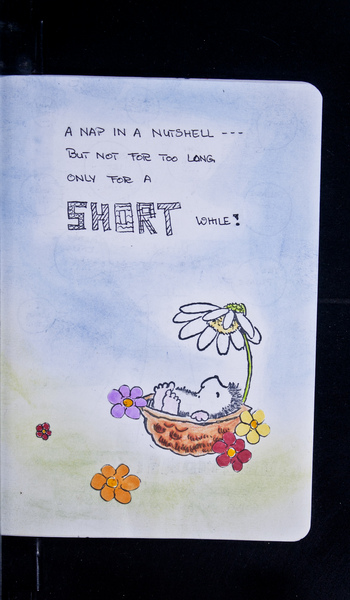 A NAP IN A NUTSHELL ---
BUT NOT FOR TOO LONG
ONLY FOR A
SHORT WHILE!